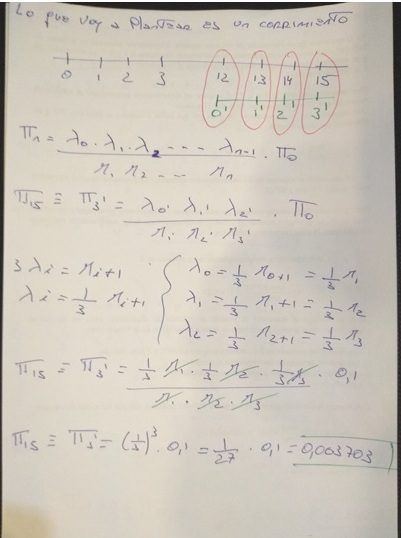 Lo que voy a plantear es un corrimiento
0 1 2 3 12 13 14 15
0' 1' 2' 3'
Πn = λ0 · λ1 · λ2 --- λn-1 / μ1 μ2 --- μn · Π0
Π15 ≡ Π3' = λ0' λ1' λ2' / μ1' μ2' μ3' · Π0
3 λi = μi+1
λi = 1/3 μi+1
λ0 = 1/3 μ0+1 = 1/3 μ1
λ1 = 1/3 μ1+1 = 1/3 μ2
λ2 = 1/3 μ2+1 = 1/3 μ3
Π15 ≡ Π3' = 1/3 μ1 · 1/3 μ2 · 1/3 μ3 · 0,1 / μ1 · μ2 · μ3
Π15 ≡ Π3' = (1/3)^3 · 0,1 = 1/27 · 0,1 = 0,003703